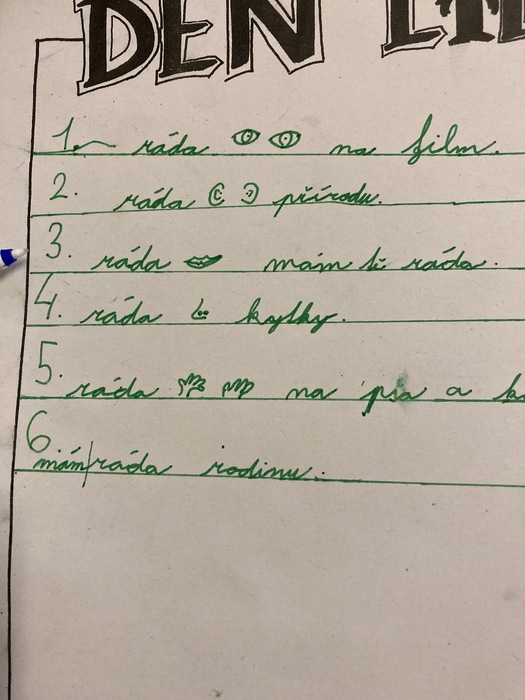 DEN
1. ráda na film.
2. ráda přírodu.
3. ráda mám tě ráda.
4. ráda kytky.
5. ráda na psa a
6. mám ráda rodinu.